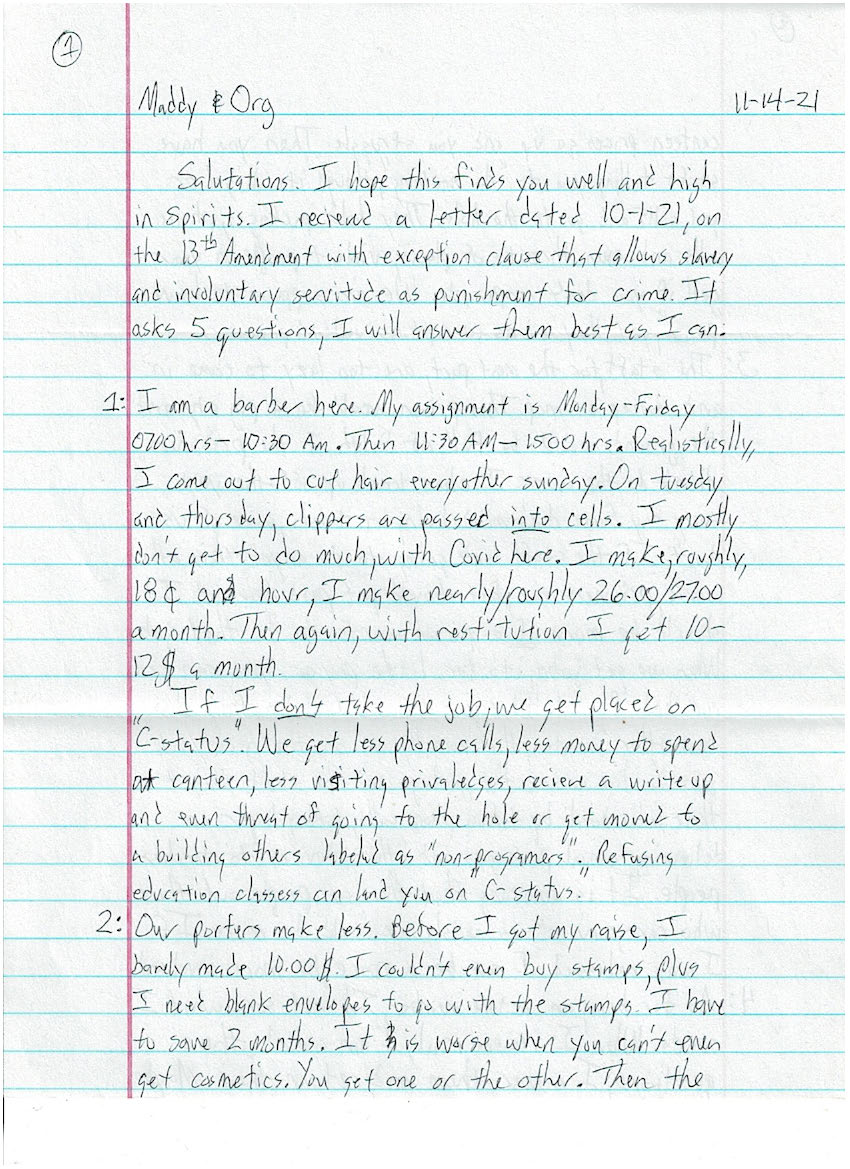 1
Maddy & Org 11-14-21
Salutations. I hope this finds you well and high
in spirits. I recieved a letter dated 10-1-21, on
the 13th Amendment with exception clause that allows slavery
and involuntary servitude as punishment for crime. It
asks 5 questions, I will answer them best as I can.
1: I am a barber here. My assignment is Monday-Friday
0700 hrs - 10:30 Am. Then 11:30 AM - 1500 hrs. Realistically,
I come out to cut hair everyother sunday. On tuesday
and thursday, clippers are passed into cells. I mostly
don't get to do much, with Covid here. I make, roughly,
18¢ and hour, I make nearly/roughly 26.00/27.00
a month. Then again, with restitution I get 10-
12$ a month.
If I don't take the job, we get placed on
"C-status". We get less phone calls, less money to spend
at canteen, less visiting privaledges, recieve a write up
and even threat of going to the hole or get moved to
a building others labeled as "non-programers". Refusing
education classess can land you on "C-status."
2: Our porters make less. Before I got my raise, I
barely made 10.00$. I couldn't even buy stamps, plus
I need blank envelopes to go with the stamps. I have
to save 2 months. It is worse when you can't even
get cosmetics. You get one or the other. Then the